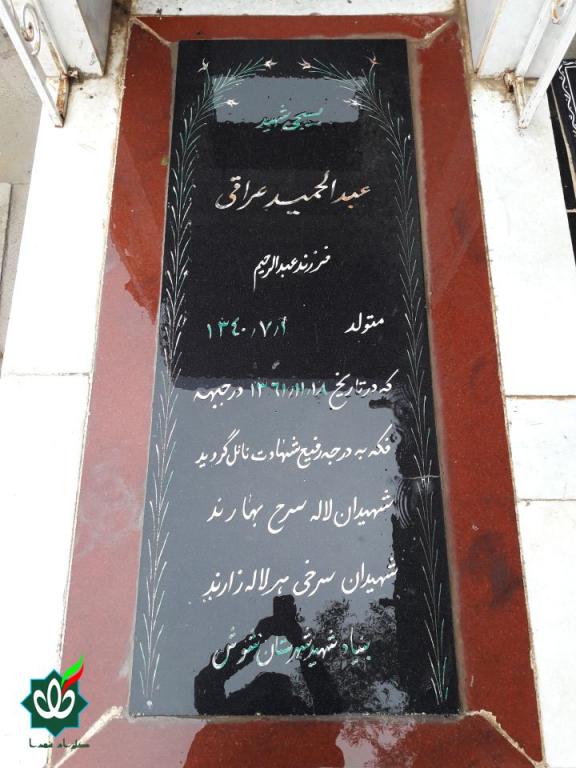 بسیجی شهید
عبدالحمید عراقی
فرزند عبدالرحیم
متولد ۱۳۴۰/۷/۱
که در تاریخ ۱۳۶۱/۱۱/۱۸ در جبهه
فکه به درجه رفیع شهادت نائل گردید
شهیدان لاله سرخ بهارند
شهیدان سرخی هر لاله زارند
بنیاد شهید شهرستان
گلزار شهدا